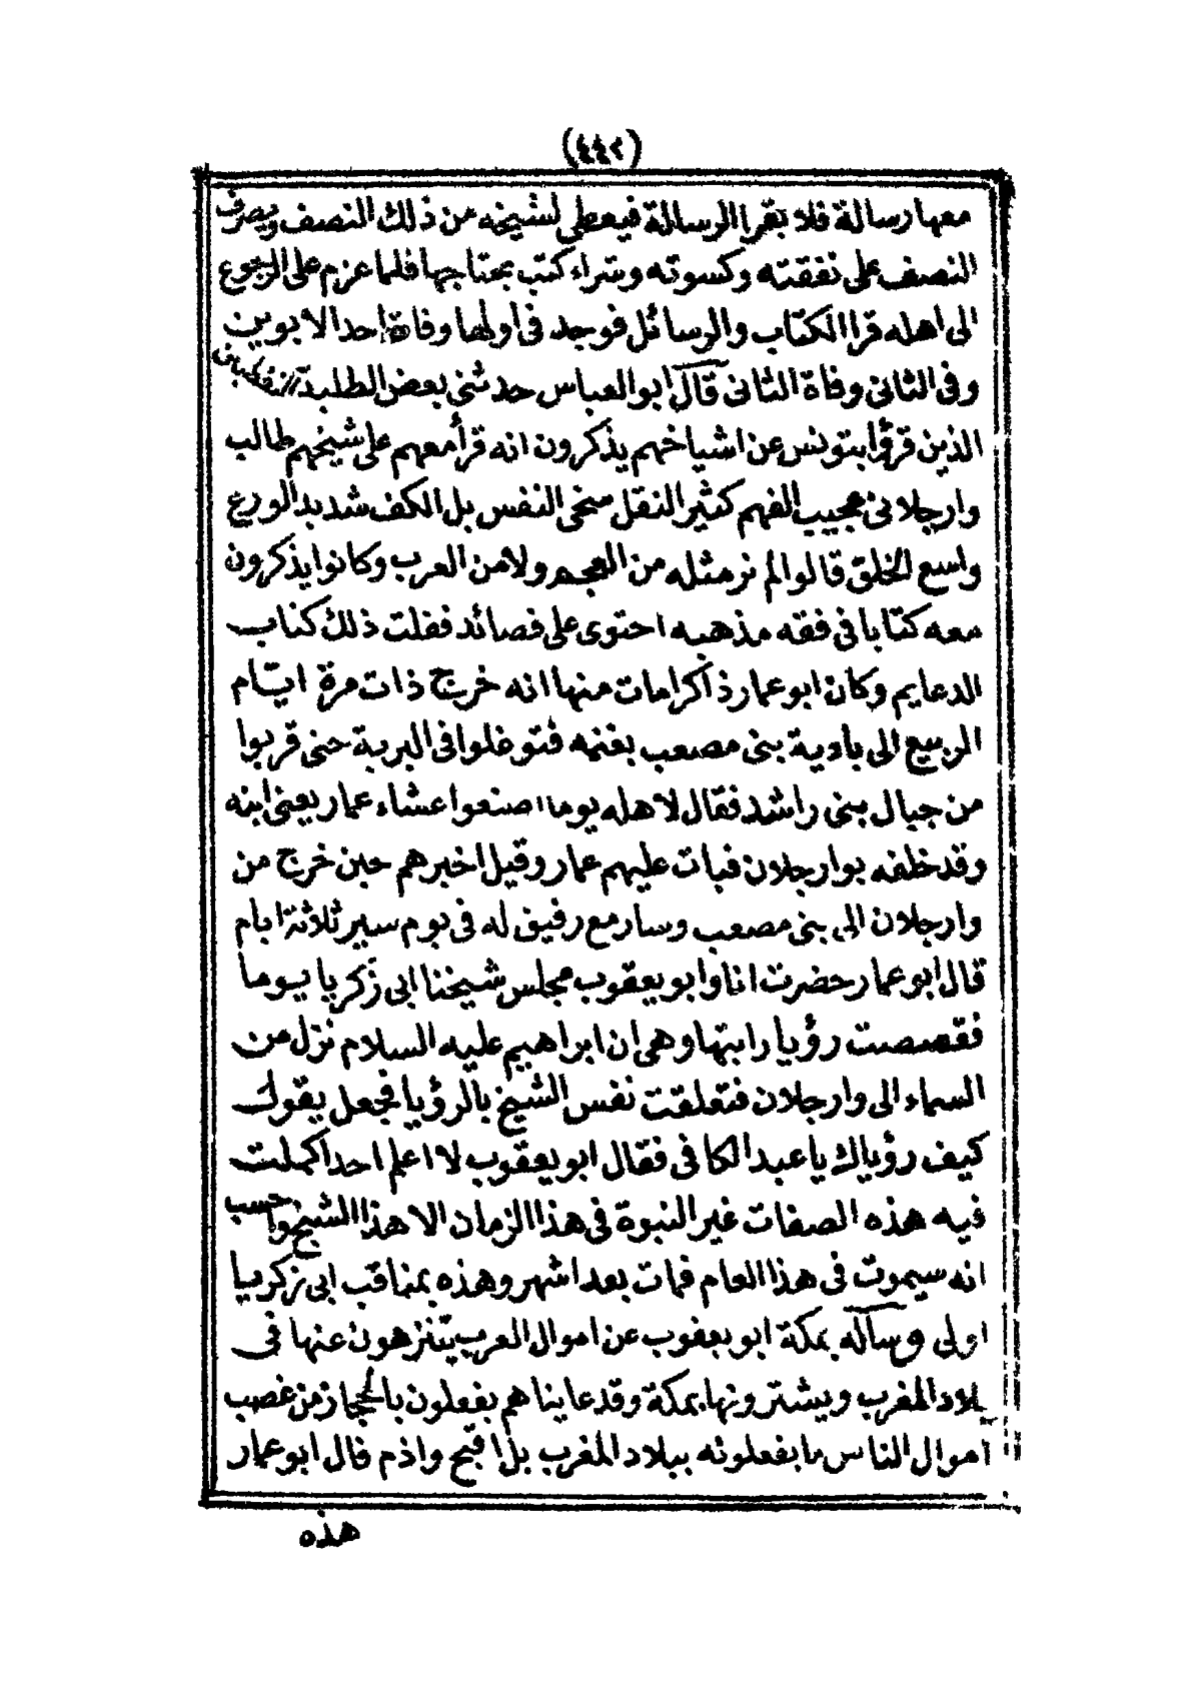 (٤٤٢)
معها رسالة فلا يقرا الرسالة فيعطى لشيخه من ذلك النصف ويصرف
النصف على نفقته وكسوته وشراء كتب يحتاجها فلما عزم على الرجوع
الى اهله قرا الكتاب والرسائل فوجد فى اولها وفاة احد الابوين
وفى الثانى وفاة الثانى قال ابو العباس حدثنى بعض الطلبة
الذين قرؤا بتونس عن اشياخهم يذكرون انه قرأ معهم على شيخهم طالب
وارجلانى عجيب الفهم كثير النقل سخى النفس بل الكف شديد الورع
واسع الخلق قالوا لم نر مثله من العجم ولا من العرب وكانوا يذكرون
معه كتابا فى فقه مذهبه احتوى على قصائد فقلت ذلك كتاب
الدعايم وكان ابو عمار ذا كرامات منها انه خرج ذات مرة ايام
الربيع الى بادية بنى مصعب بغنمه فتوغلوا فى البرية حتى قربوا
من جبال بنى راشد فقال لاهله يوما اصنعوا عشاء عمار يعنى ابنه
وقد خلفه بوارجلان فبات عليهم عمار وقيل اخبرهم حين خرج من
وارجلان الى بنى مصعب وسار مع رفيق له فى يوم سير ثلاثة ايام
قال ابو عمار حضرت انا وابو يعقوب مجلس شيخنا ابى زكريا يوما
فقصصت رؤيا رايتها وهى ان ابراهيم عليه السلام نزل من
السماء الى وارجلان فتعلقت نفس الشيخ بالرؤيا فجعل يقول
كيف رؤياك يا عبد الكافى فقال ابو يعقوب لا اعلم احدا كملت
فيه هذه الصفات غير النبوة فى هذا الزمان الا هذا الشيخ واحسب
انه سيموت فى هذا العام فمات بعد اشهر وهذه بمناقب ابى زكريا
اولى وساله بمكة ابو يعقوب عن اموال العرب يتنزهون عنها فى
بلاد المغرب ويشترونها بمكة وقد عاينا هم يفعلون بالحجاز من غصب
اموال الناس ما يفعلونه ببلاد المغرب بل اقبح واذم قال ابو عمار
هذه